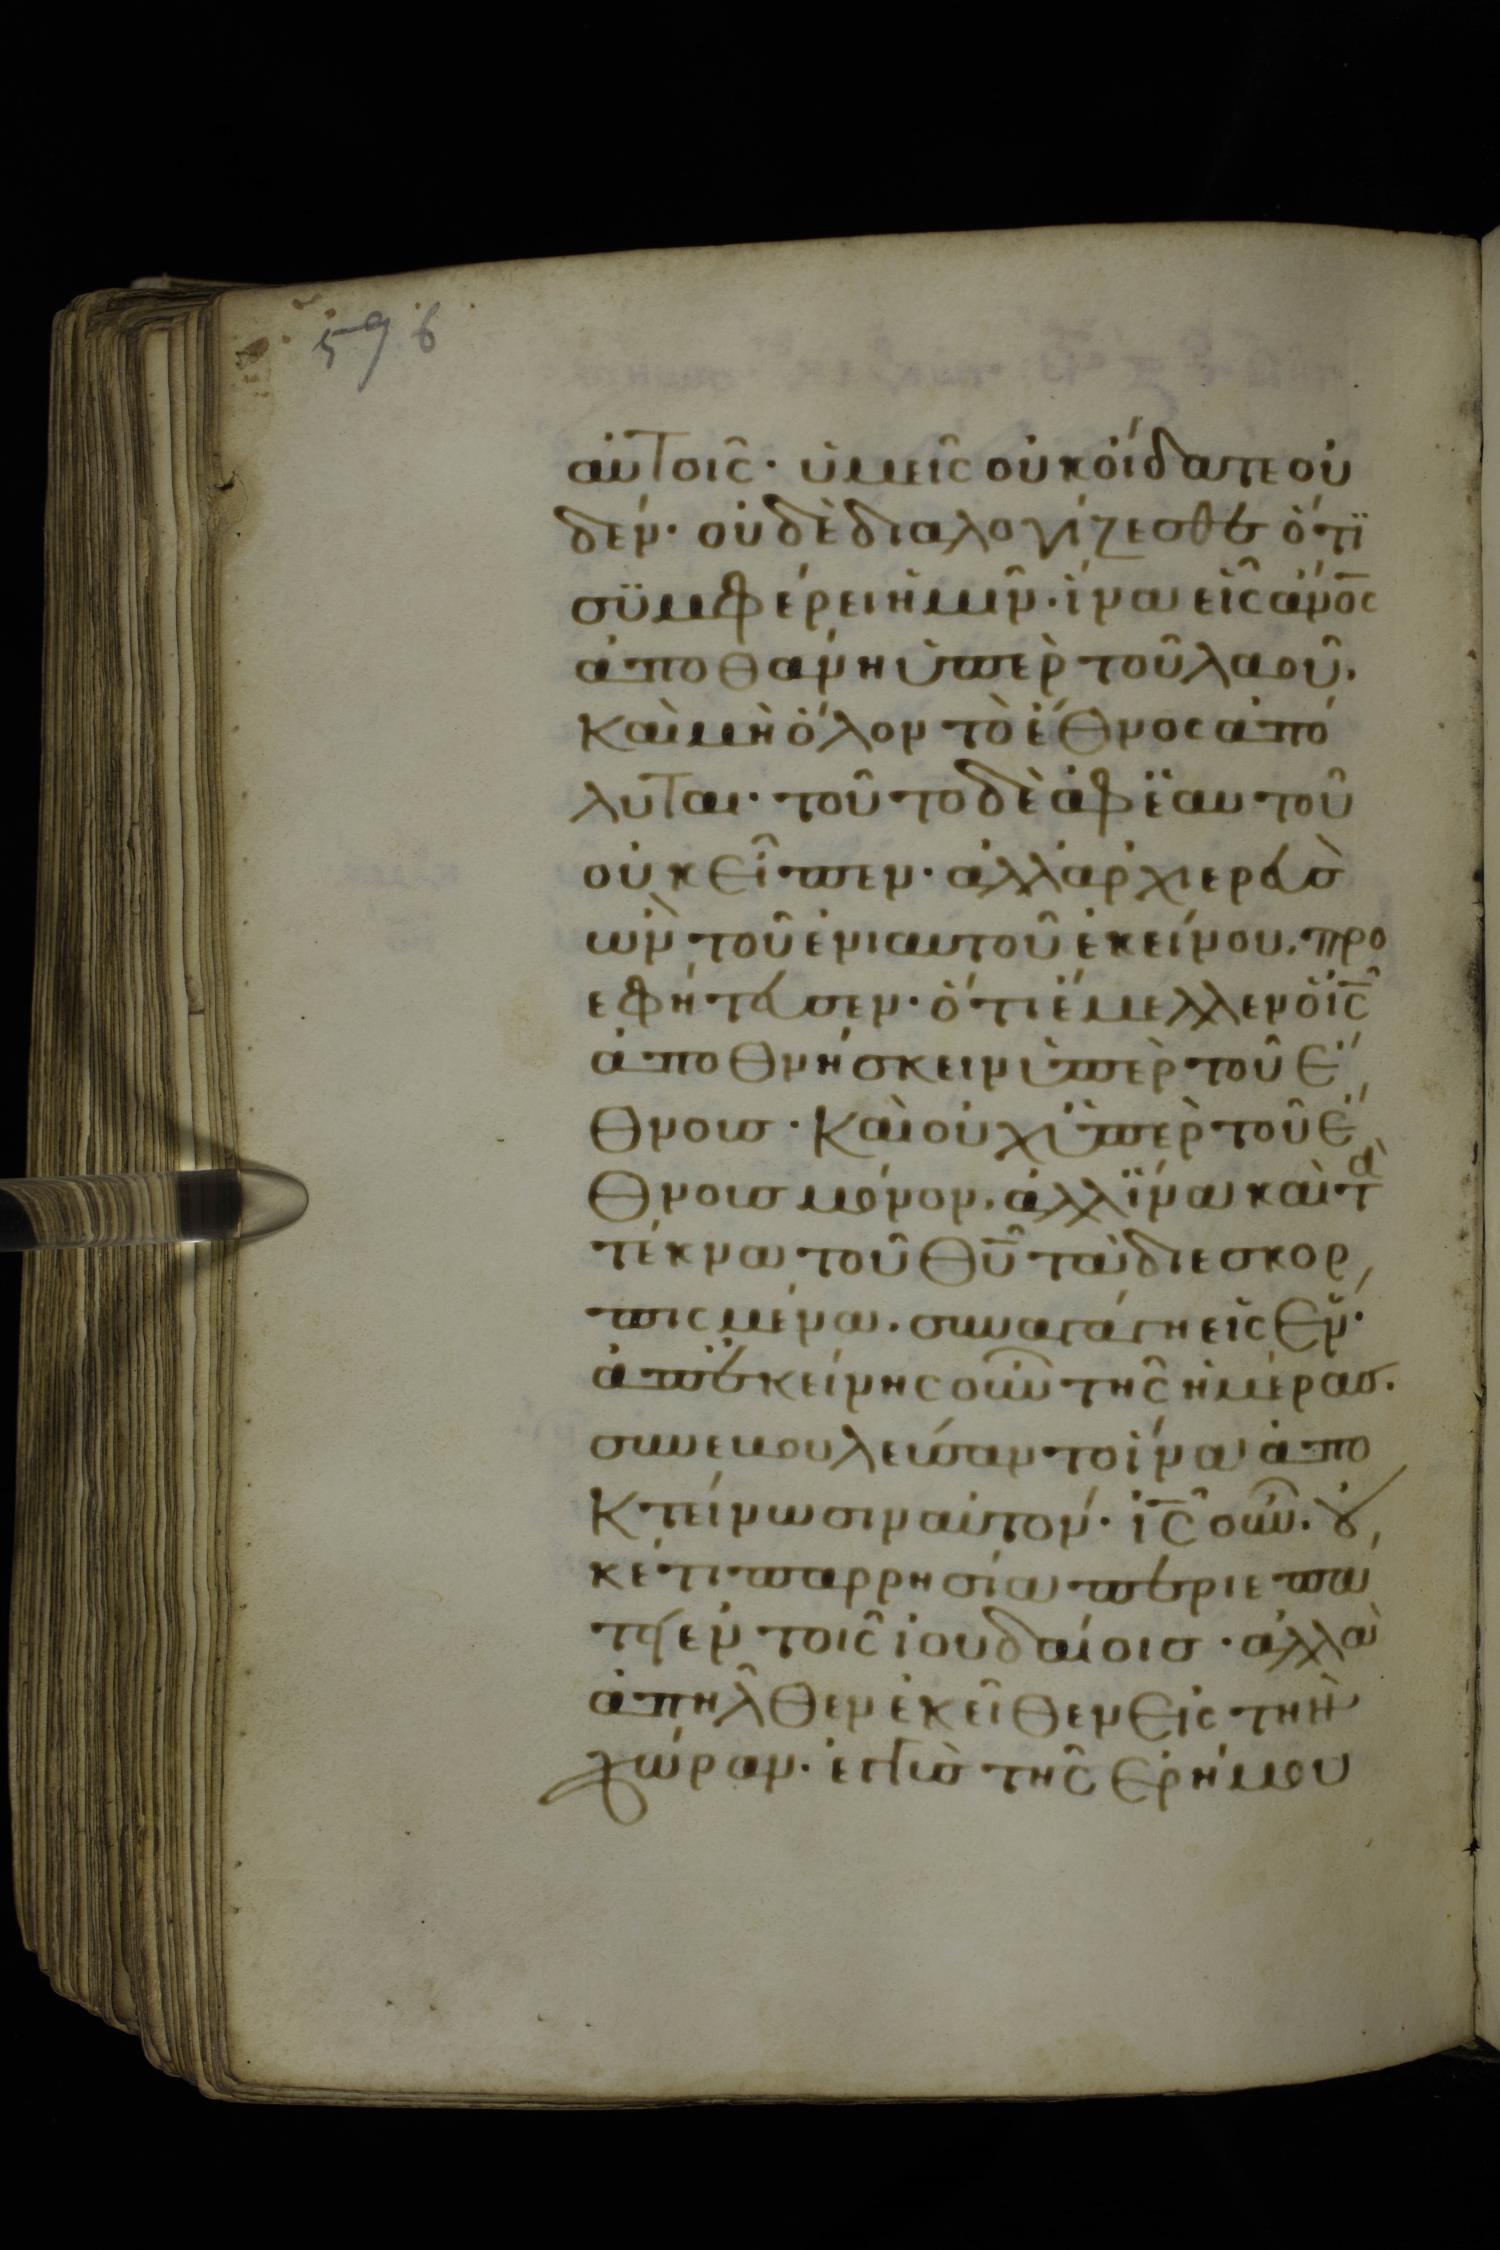 596
αὐτοῖς· ὑμεῖς οὐκ οἴδατε οὐ
δέν· οὐδὲ διαλογίζεσθε ὅτϊ
σϋμφέρει ἡμῖν· ἵνα εἷς ἄν̅ο̅ς̅
ἀποθάνη ὑπὲρ τοῦ λαοῦ,
καὶ μὴ ὅλον τὸ ἔθνος ἀπό
λυται· τοῦτο δὲ ἀφ ἑαυτοῦ
οὐκ εἶπεν· ἀλλ ἀρχιερεὺσ
ὢν τοῦ ἐνιαυτοῦ ἐκείνου, προ
εφήτευσεν· ὅτι ἔμελλεν ὁ ι̅ς̅
ἀποθνήσκειν ὑπὲρ τοῦ ἔ
θνουσ· καὶ οὐχ ὑπὲρ τοῦ ἔ
θνουσ μόνον, ἀλλ ἵνα καὶ τὰ
τέκνα τοῦ θ̅υ̅ τὰ διεσκορ
πισμένα, συναγάγη εἰς ἕν·
ἀπ ἐκείνης οὖν τῆς ἡμέρασ.
συνεβουλεύσαντο ἵνα ἀπο
κτείνωσιν αὐτόν· ι̅ς̅ οὖν. οὐ
κέτι παρρησία περιεπά
τει ἐν τοῖς ἰουδαίοισ· ἀλλὰ
ἀπῆλθεν ἐκεῖθεν εἰς τὴν
χώραν· ἐγγὺσ τῆς ἐρήμου